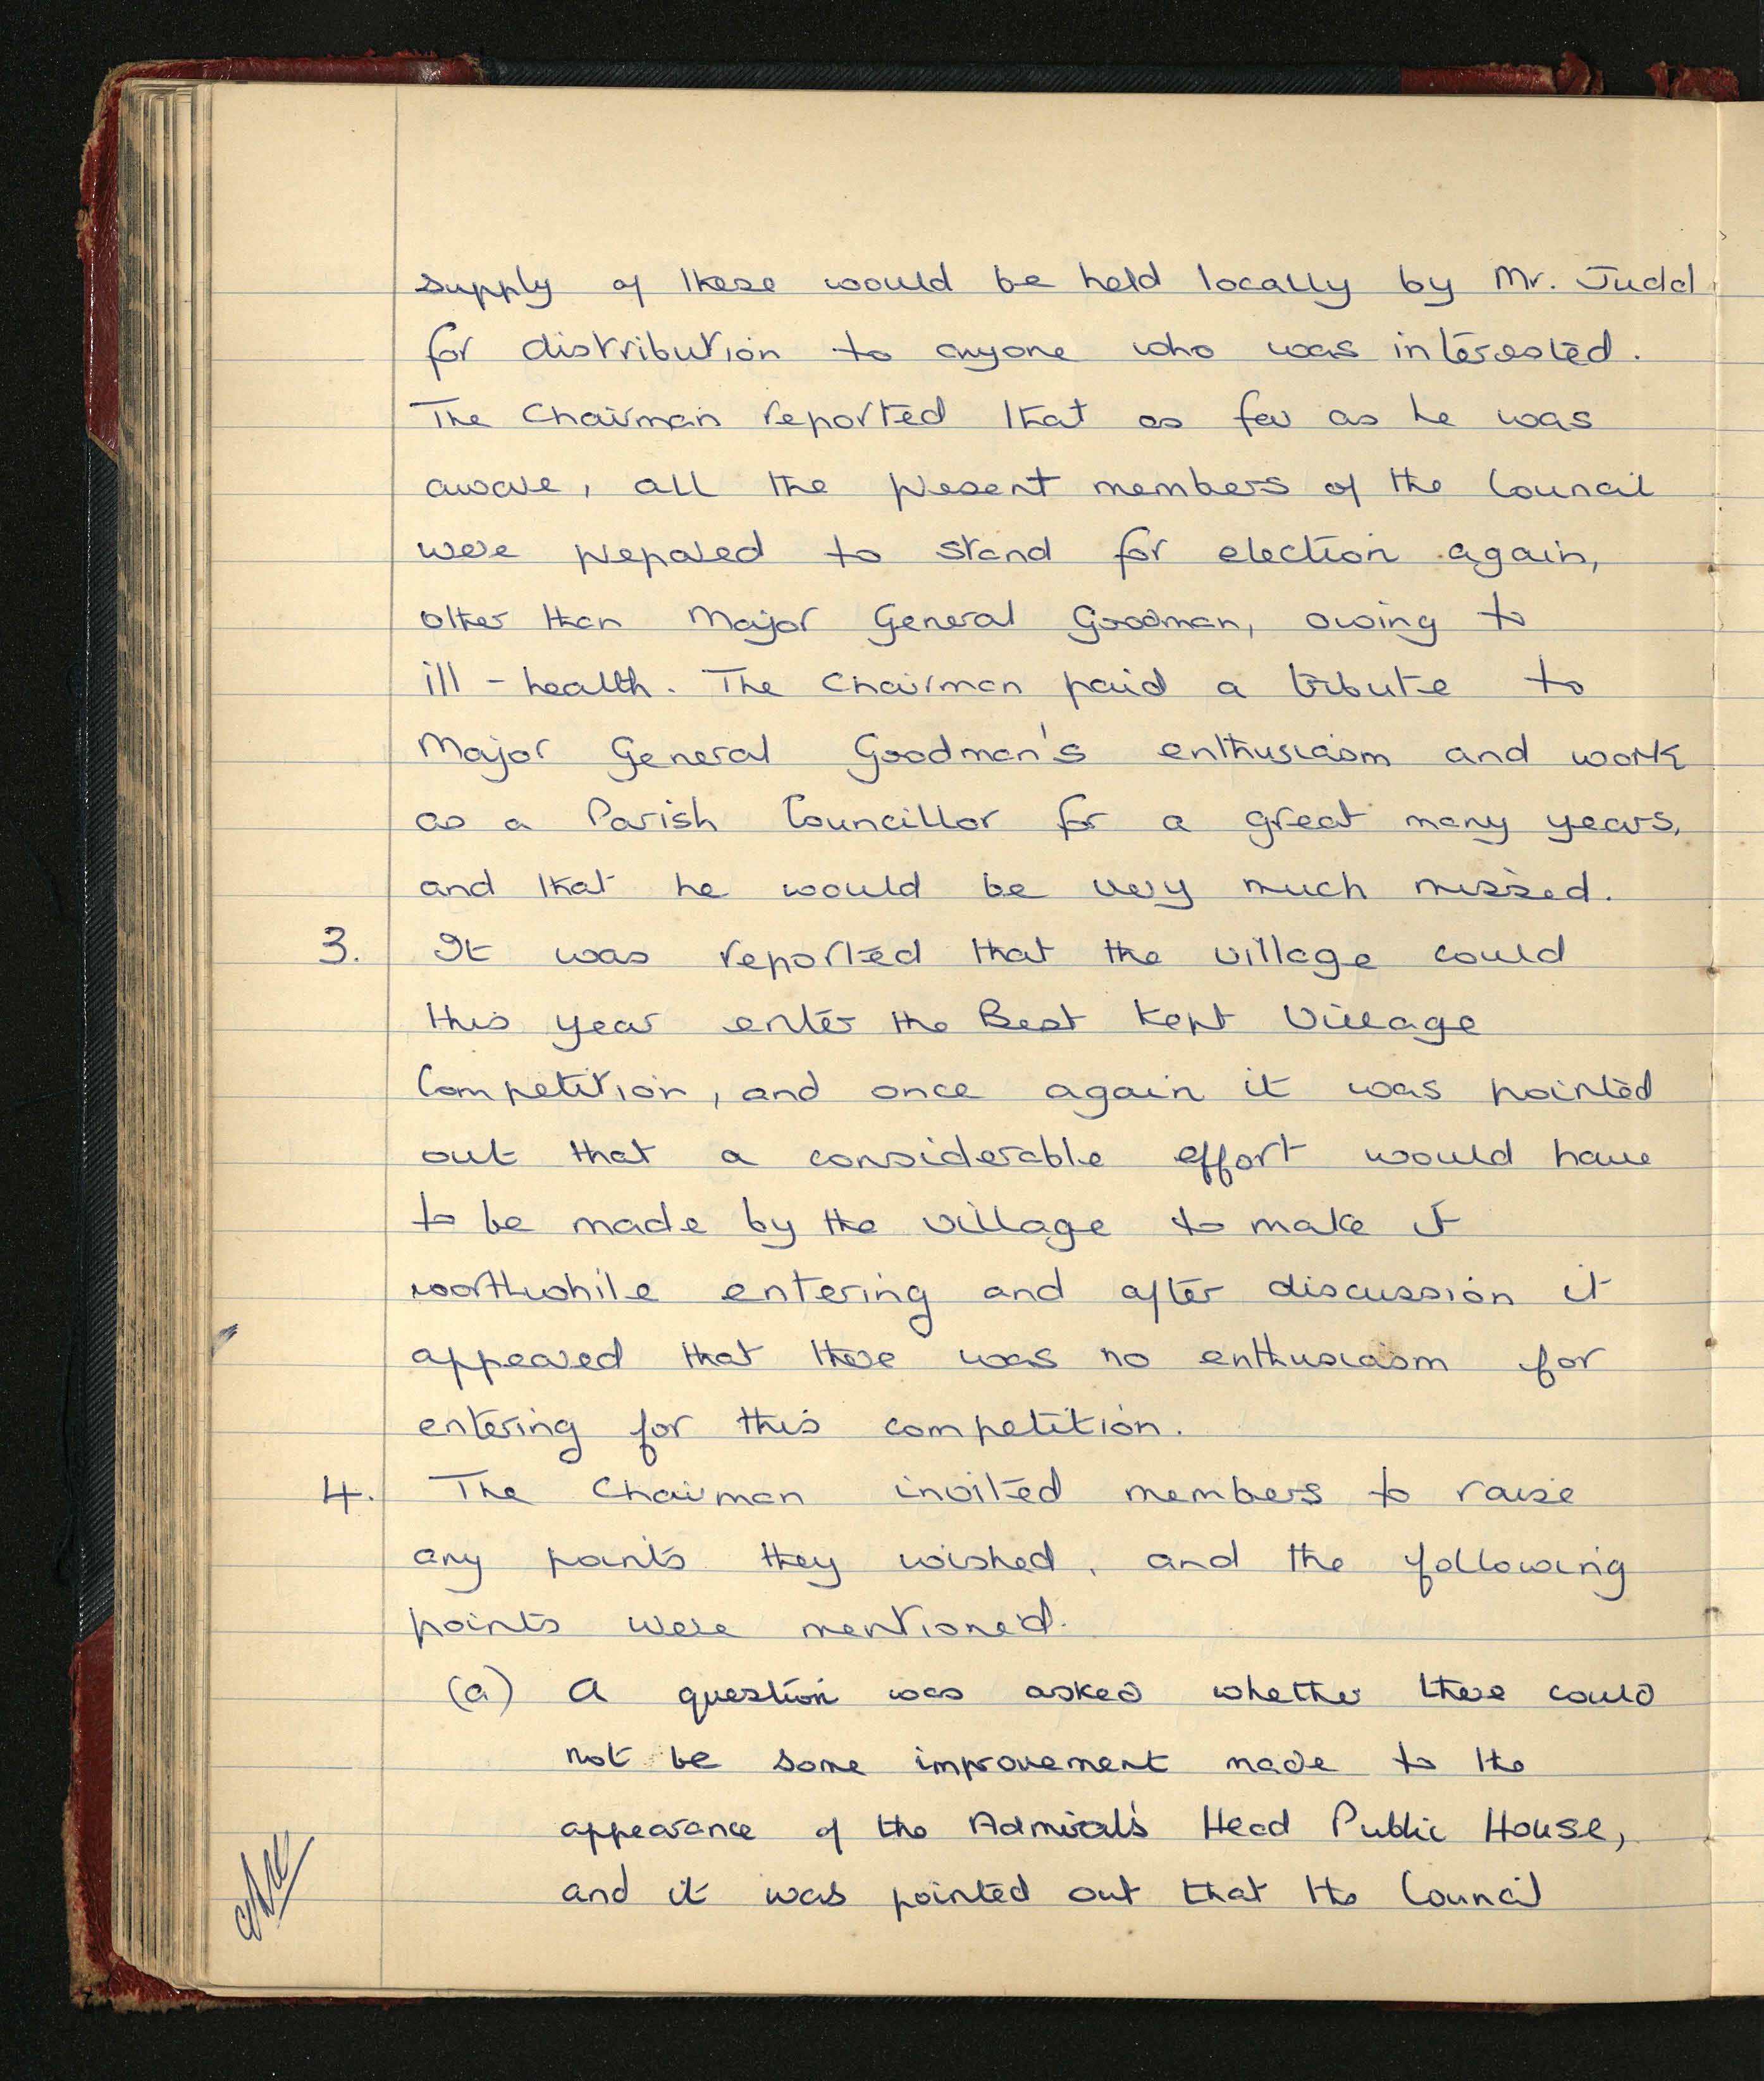 supply of these would be held locally by Mr. Judd
for distribution to anyone who was interested.
The Chairman reported that as far as he was
aware, all the present members of the Council
were prepared to stand for election again,
other than Major General Goodman, owing to
ill-health. The Chairman paid a tribute to
Major General Goodman's enthusiasm and work
as a Parish Councillor for a great many years,
and that he would be very much missed.
3. It was reported that the village could
this year enter the Best Kept Village
Competition, and once again it was pointed
out that a considerable effort would have
to be made by the village to make it
worthwhile entering and after discussion it
appeared that there was no enthusiasm for
entering for this competition.
4. The Chairman invited members to raise
any points they wished, and the following
points were mentioned.
(a) A question was asked whether there could
not be some improvement made to the
appearance of the Admiral's Head Public House,
and it was pointed out that the Council